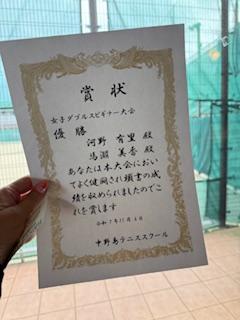 賞状
女子ダブルスビギナー大会
優勝
河野 有里 殿
馬淵 美香 殿
あなたは本大会におい
てよく健闘され頭書の成
績を収められましたのでこ
れを賞します
令和7年11月4日
中野島テニススクール